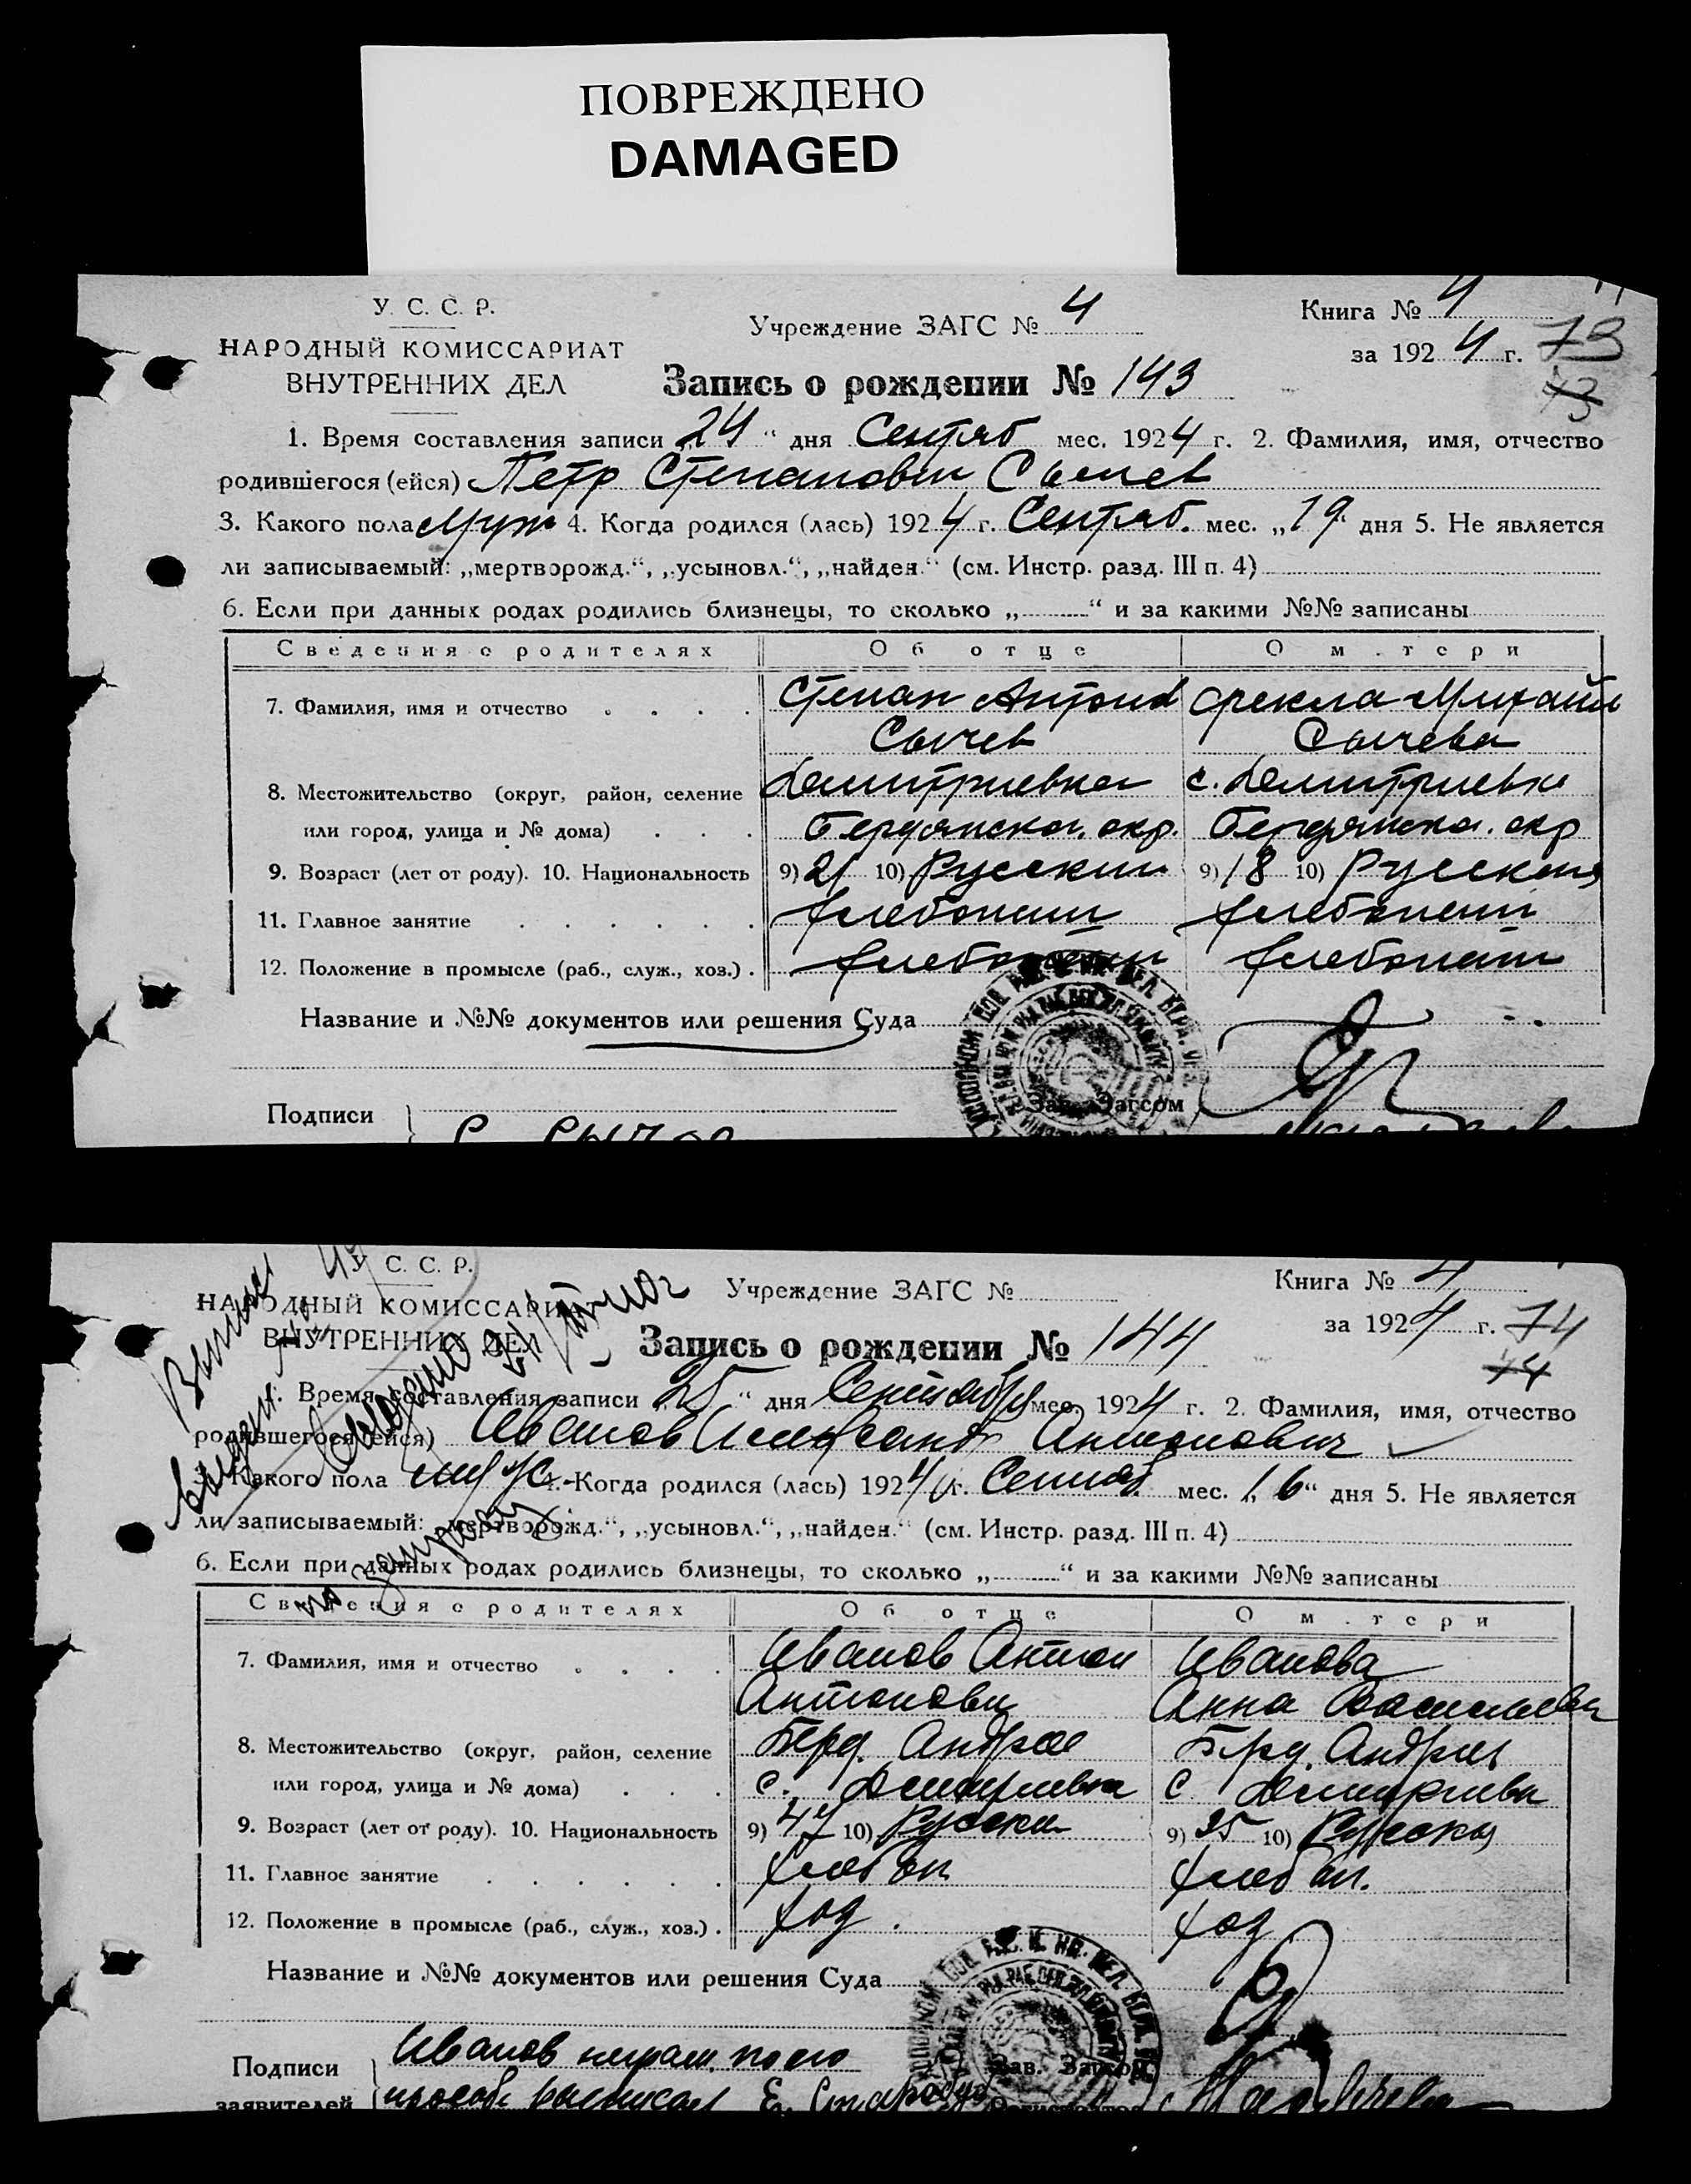 ПОВРЕЖДЕНО
DAMAGED
У. С. С. Р.
НАРОДНЫЙ КОМИССАРИАТ
ВНУТРЕННИХ ДЕЛ
Учреждение ЗАГС № 4
Книга № 4
за 1924 г. 73
73
Запись о рождении № 143
1. Время составления записи „24“ дня Сентяб мес. 1924 г. 2. Фамилия, имя, отчество
родившегося (ейся) Петр Степанович Сычев
3. Какого пола Муж 4. Когда родился (лась) 1924 г. Сентяб. мес. „19“ дня 5. Не является
ли записываемый: „мертворожд.“, „усыновл.“, „найден.“ (см. Инстр. разд. III п. 4)
6. Если при данных родах родились близнецы, то сколько „ “ и за какими №№ записаны
Сведения о родителях Об отце О матери
7. Фамилия, имя и отчество Степан Антонов Фекла Михайл
Сычев Сычева
8. Местожительство (округ, район, селение Дмитриевка с. Дмитриевка
или город, улица и № дома) Бердянска. окр. Бердянска. окр
9. Возраст (лет от роду). 10. Национальность 9) 21 10) Русский 9) 18 10) Русская
11. Главное занятие хлебопаш хлебопаш
12. Положение в промысле (раб., служ., хоз.) хлебопаш хлебопаш
Название и №№ документов или решения Суда
Зав. Загсом
Подписи
С Сычев
У. С. С. Р.
НАРОДНЫЙ КОМИССАРИАТ
ВНУТРЕННИХ ДЕЛ
Учреждение ЗАГС №
Книга № 4
за 1924 г. 74
74
Запись о рождении № 144
1. Время составления записи „25“ дня Сентября мес. 1924 г. 2. Фамилия, имя, отчество
родившегося (ейся) Иванов Александр Антонович
3. Какого пола муж. 4. Когда родился (лась) 1924 г. Сентяб мес. „16“ дня 5. Не является
ли записываемый: „мертворожд.“, „усыновл.“, „найден.“ (см. Инстр. разд. III п. 4)
6. Если при данных родах родились близнецы, то сколько „ “ и за какими №№ записаны
по запросу
Сведения о родителях Об отце О матери
7. Фамилия, имя и отчество Иванов Антон Иванова
Антонович Анна Васильевн
8. Местожительство (округ, район, селение Берд. Андрее Берд. Андрее
или город, улица и № дома) с. Дмитриевка с Дмитриевк
9. Возраст (лет от роду). 10. Национальность 9) 47 10) Русски 9) 25 10) Русская
11. Главное занятие хлебоп хлебоп.
12. Положение в промысле (раб., служ., хоз.) хоз. хоз
Название и №№ документов или решения Суда
Зав. Загсом
Подписи Иванов неграм. по его
заявителей просьбе расписал Е. Стародуб